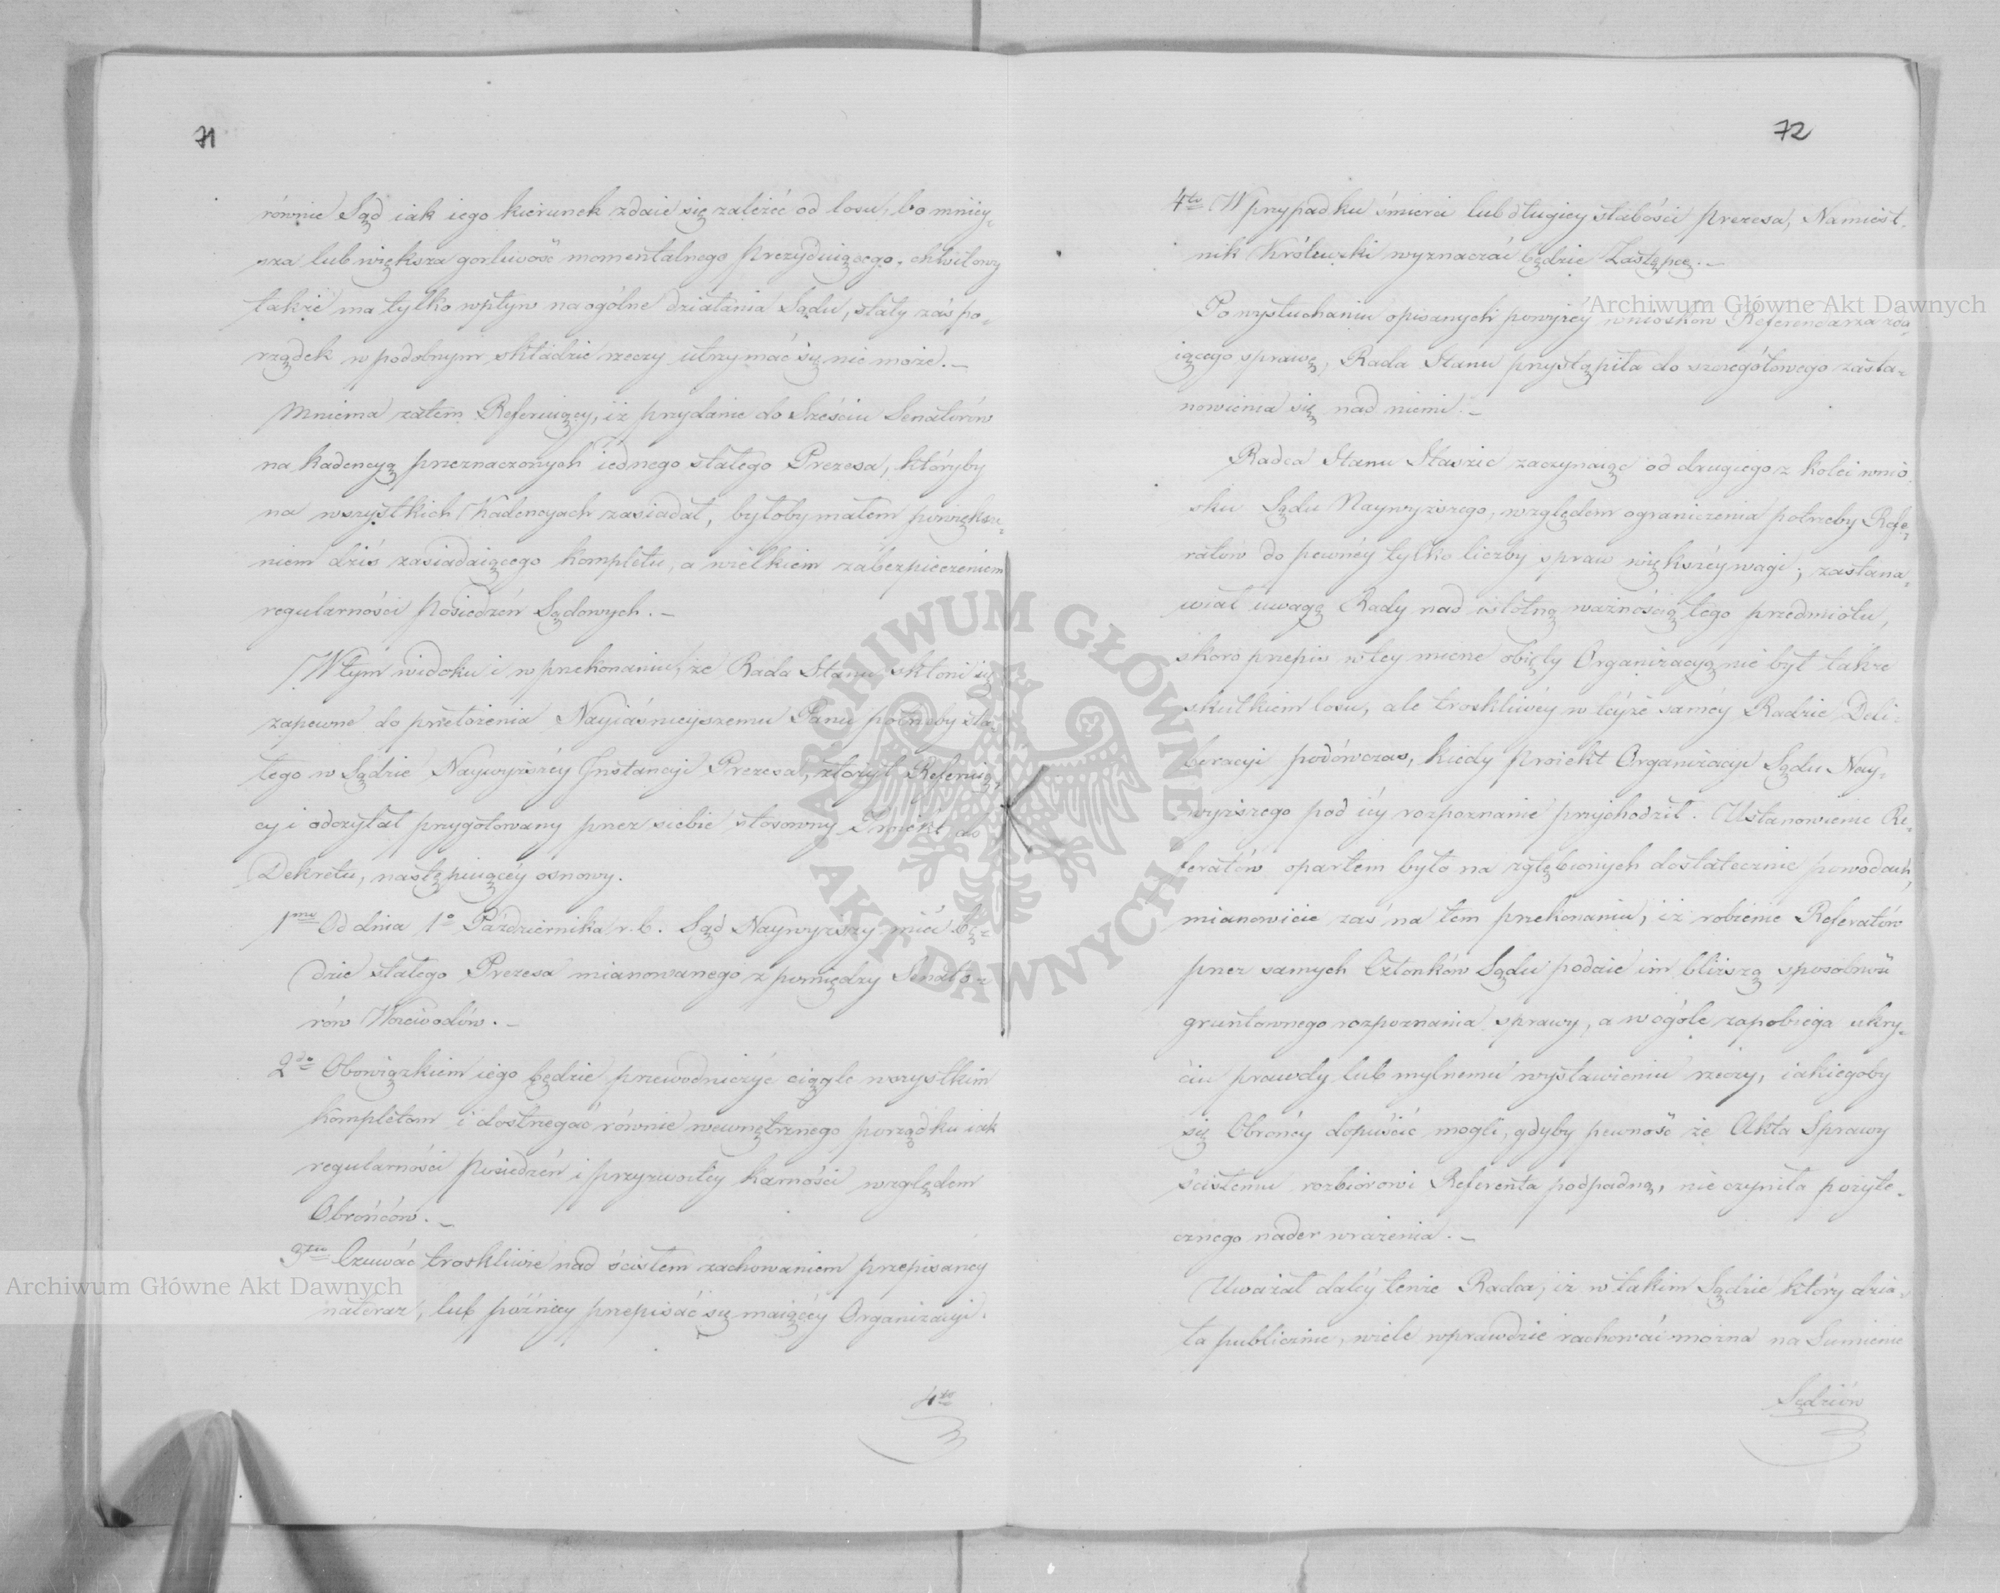 71
równie Sąd iak iego kierunek zdaie się zależeć od losu, bo mniey-
sza lub większa gorliwość momentalnego Prezyduiącego, chwilowy
także ma tylko wpływ na ogólne działania Sądu, stały zaś po-
rządek w podobnym składzie rzeczy utrzymać się nie może.—
Mniema zatem Referuiący, iż przydanie do Sześciu Senatorów
na kadencyą przeznaczonych iednego stałego Prezesa, któryby
na wszystkich Kadencyach zasiadał, byłoby małem powiększe-
niem dziś zasiadaiącego kompletu, a wielkiem zabezpieczeniem
regularności Posiedzeń Sądowych.—
W tym widoku i w przekonaniu, że Rada Stanu skłoni się
zapewne do przełożenia Nayiaśnieyszemu Panu potrzeby sta-
łego w Sądzie Naywyższéy Instancyi Prezesa, złożył Referuią-
cy i odczytał przygotowany przez siebie stosowny Proiekt do
Dekretu, następuiącéy osnowy.
1mo Od dnia 1o Października r. b. Sąd Naywyższy mieć bę-
dzie stałego Prezesa mianowanego z pomiędzy Senato-
rów Woiewodów.—
2do Obowiązkiem iego będzie przewodniczyć ciągle wszystkim
kompletom i dostrzegać równie wewnętrznego porządku iak
regularności Posiedzeń i przyzwoitéy karności względem
Obrońców.—
3tio Czuwać troskliwie nad ścisłem zachowaniem przepisanéy
nateraz, lub późniéy przepisać się maiącéy Organizacyi.
4to
72
4to W przypadku śmierci lub długiéy słabości Prezesa, Namiest-
nik Królewski wyznaczać będzie Zastępcę.—
Po wysłuchaniu opisanych powyżéy wniosków Referendarza zda-
iącego sprawę, Rada Stanu przystąpiła do szczegółowego zasta-
nowienia się nad niemi.—
Radca Stanu Staszic zaczynaiąc od drugiego z kolei wnio-
sku Sądu Naywyższego, względem ograniczenia potrzeby Refe-
ratów do pewnéy tylko liczby spraw większéy wagi; zastana-
wiał uwagę Rady nad istotną ważnością tego przedmiotu,
skoro przepis w téy mierze obięty Organizacyą nie był także
skutkiem losu, ale troskliwéy w téyże saméy Radzie Deli-
beracyi podówczas, kiedy Proiekt Organizacyi Sądu Nay-
wyższego pod iéy rozpoznanie przychodził. Ustanowienie Re-
feratów opartem było na zgłębionych dostatecznie powodach,
mianowicie zaś na tem przekonaniu, iż robienie Referatów
przez samych Członków Sądu podaie im bliższą sposobność
gruntownego rozpoznania sprawy, a wogóle zapobiega skry-
ciu prawdy lub mylnemu wystawieniu rzeczy, iakiegoby
się Obrońcy dopuścić mogli, gdyby pewność że Akta Sprawy
ścisłemu rozbiorowi Referenta podpadną, nie czyniła pożyte-
cznego nader wrażenia.—
Uważał daléy tenże Radca, iż w takim Sądzie który dzia-
ła publicznie, wiele wprawdzie rachować można na Sumienie
Sędziów
Archiwum Główne Akt Dawnych
Archiwum Główne Akt Dawnych
ARCHIWUM GŁÓWNE AKT DAWNYCH